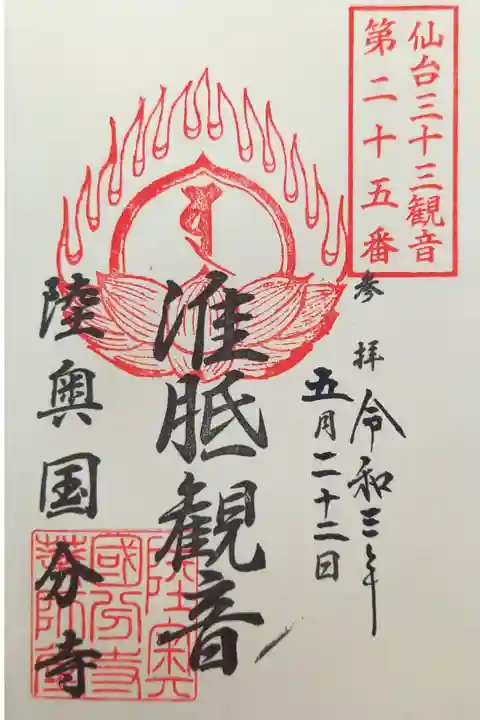 仙台三十三観音
第二十五番
参拝
令和三年
五月二十二日
准胝観音
陸奥国分寺
陸奥
國分寺
薬師堂